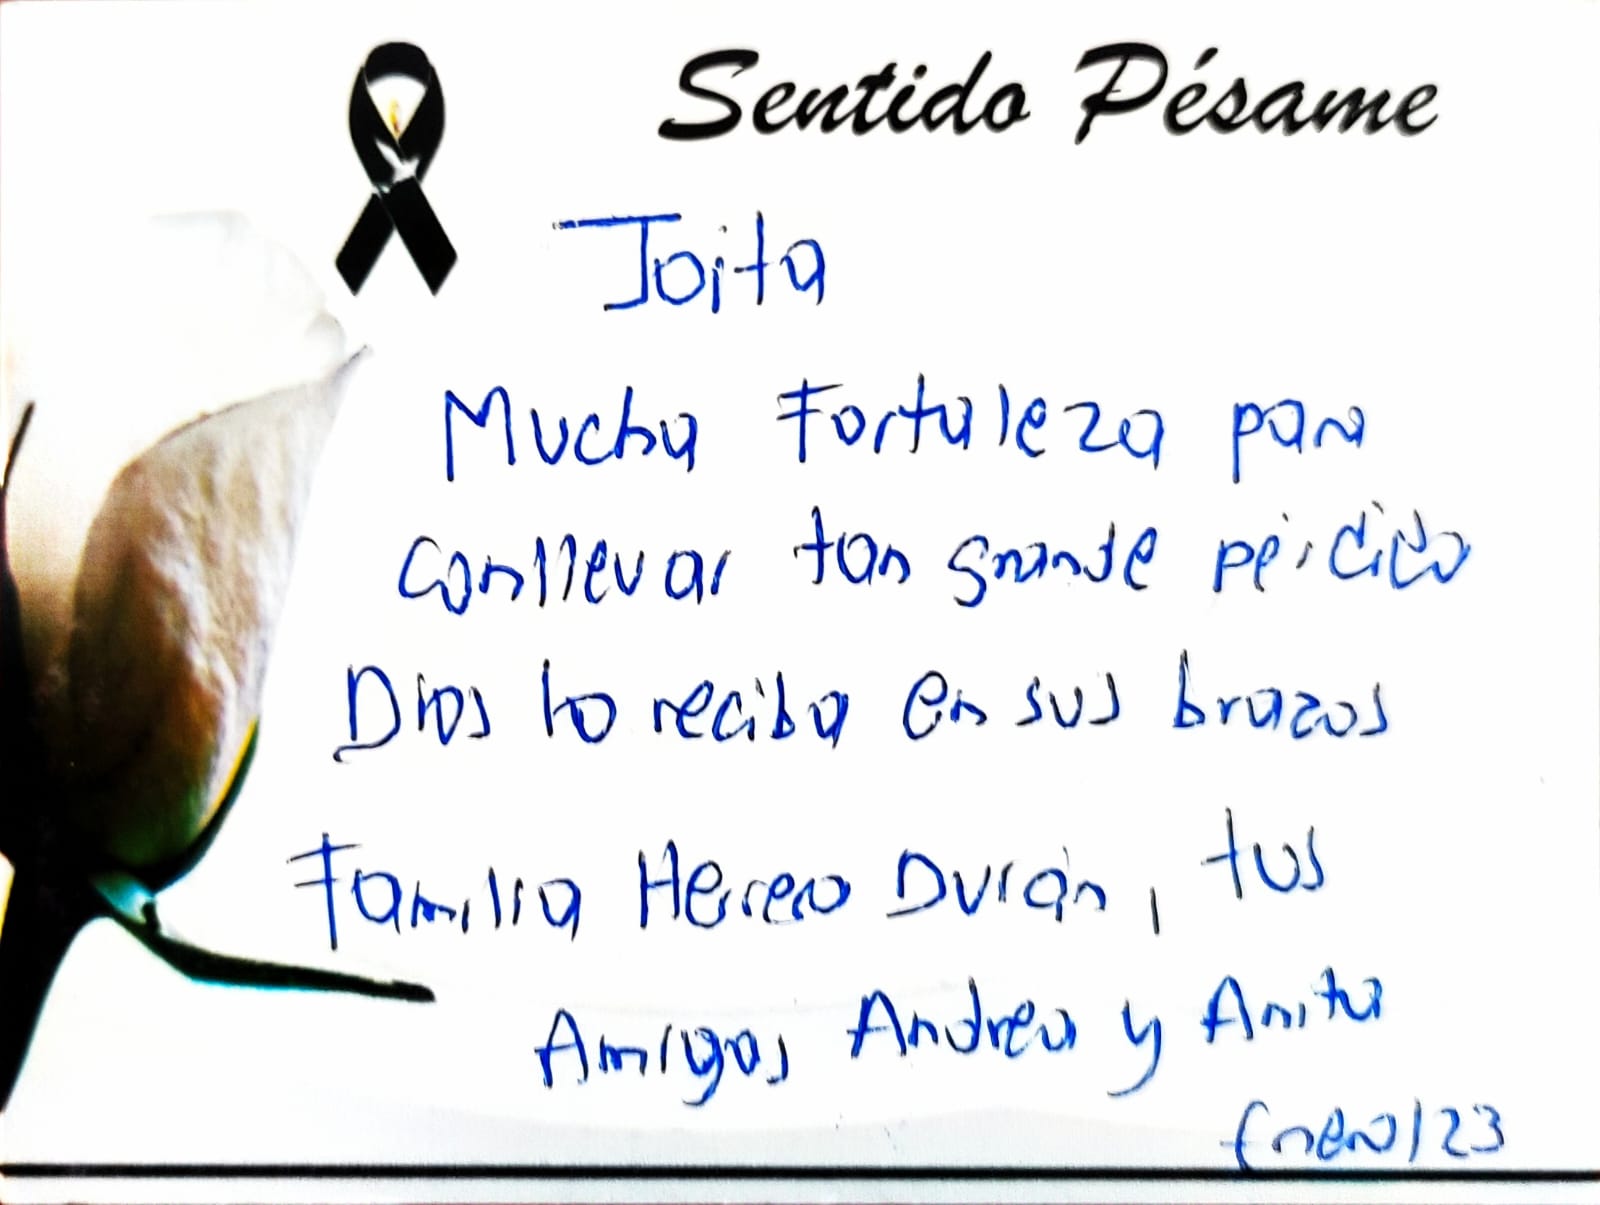 Sentido Pésame
Joita
Mucha Fortaleza para
conllevar tan grande pérdida
Dios lo reciba en sus brazos
Familia Herrera Durán, tus
Amigas Andrea y Anita
Enero/23